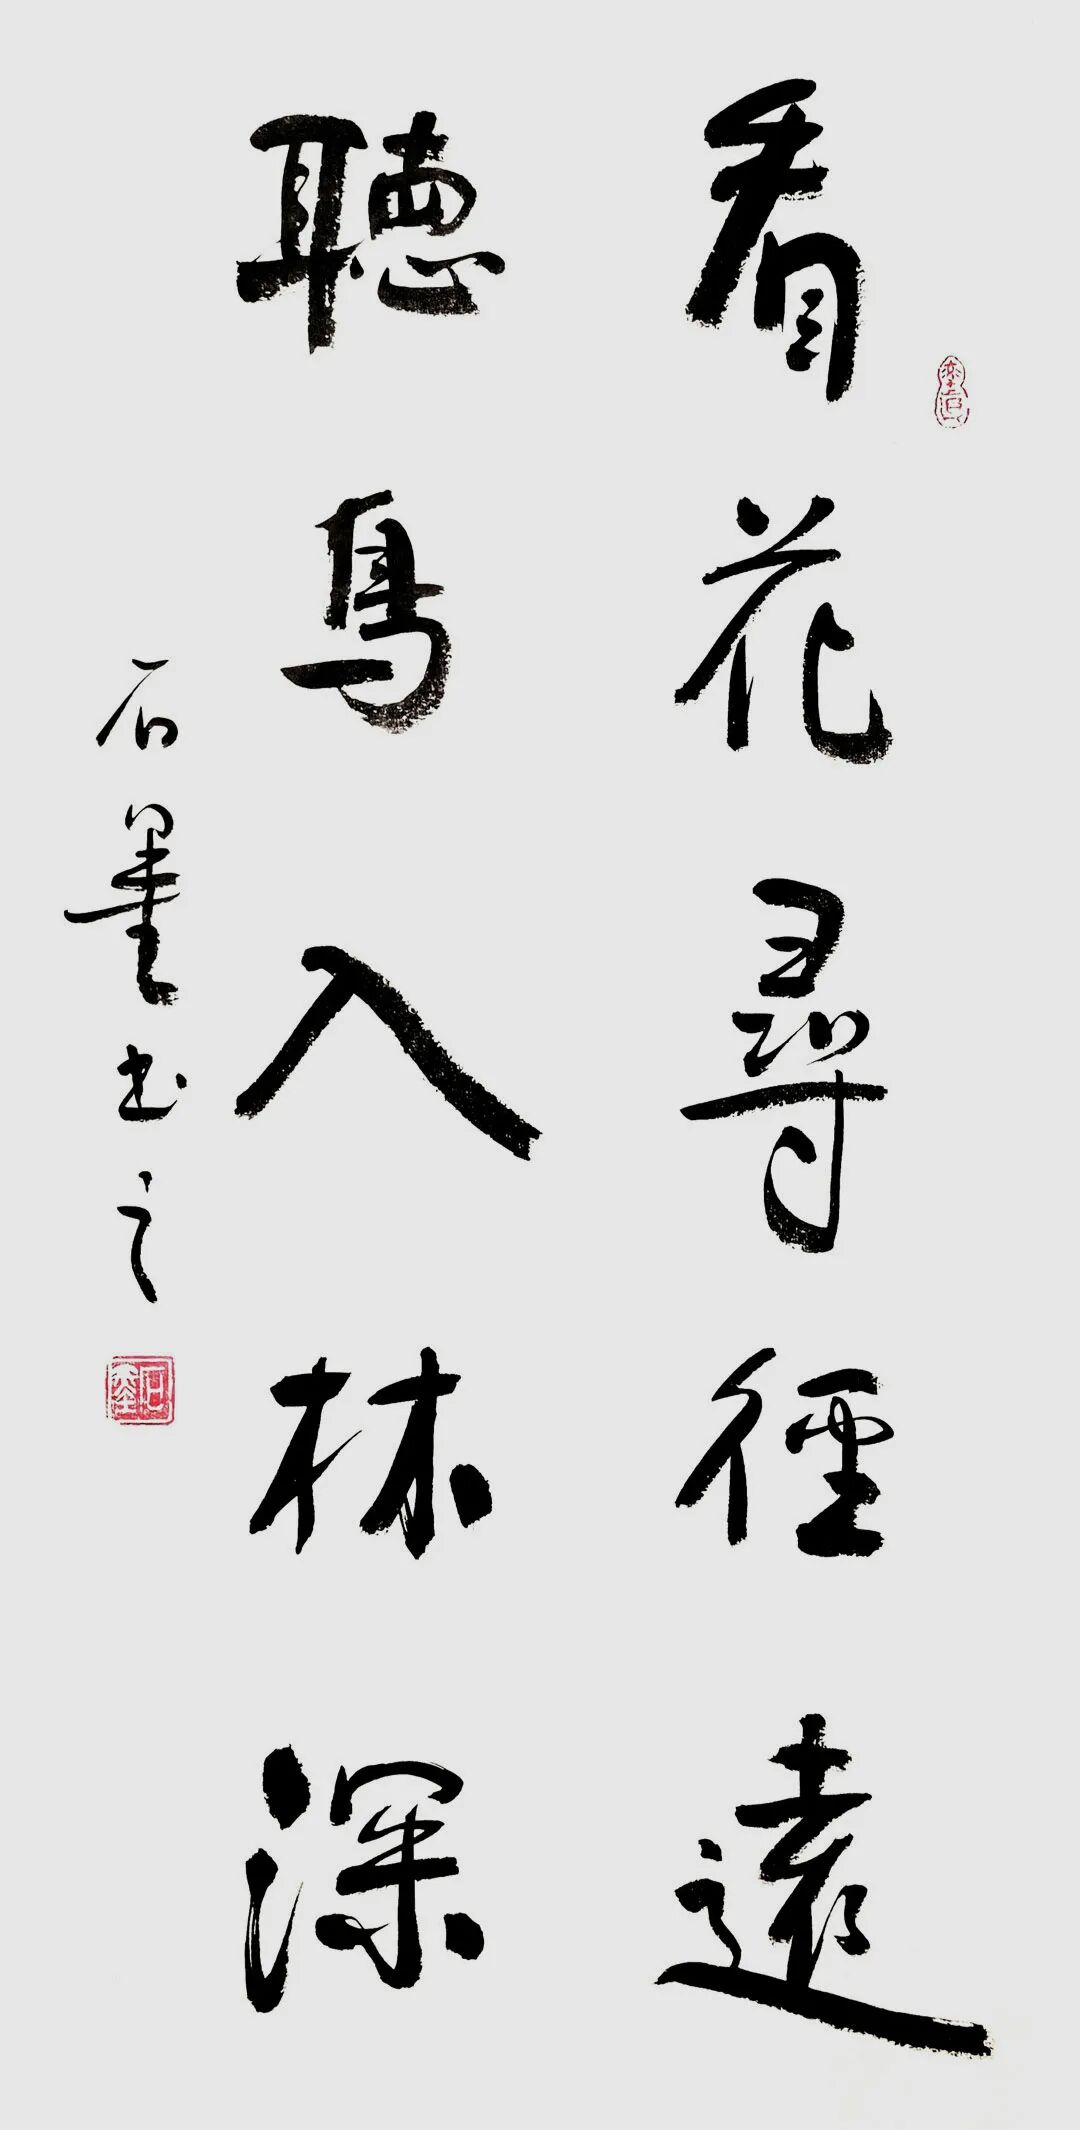 看花尋徑遠
聽鳥入林深
石墨书之
石墨